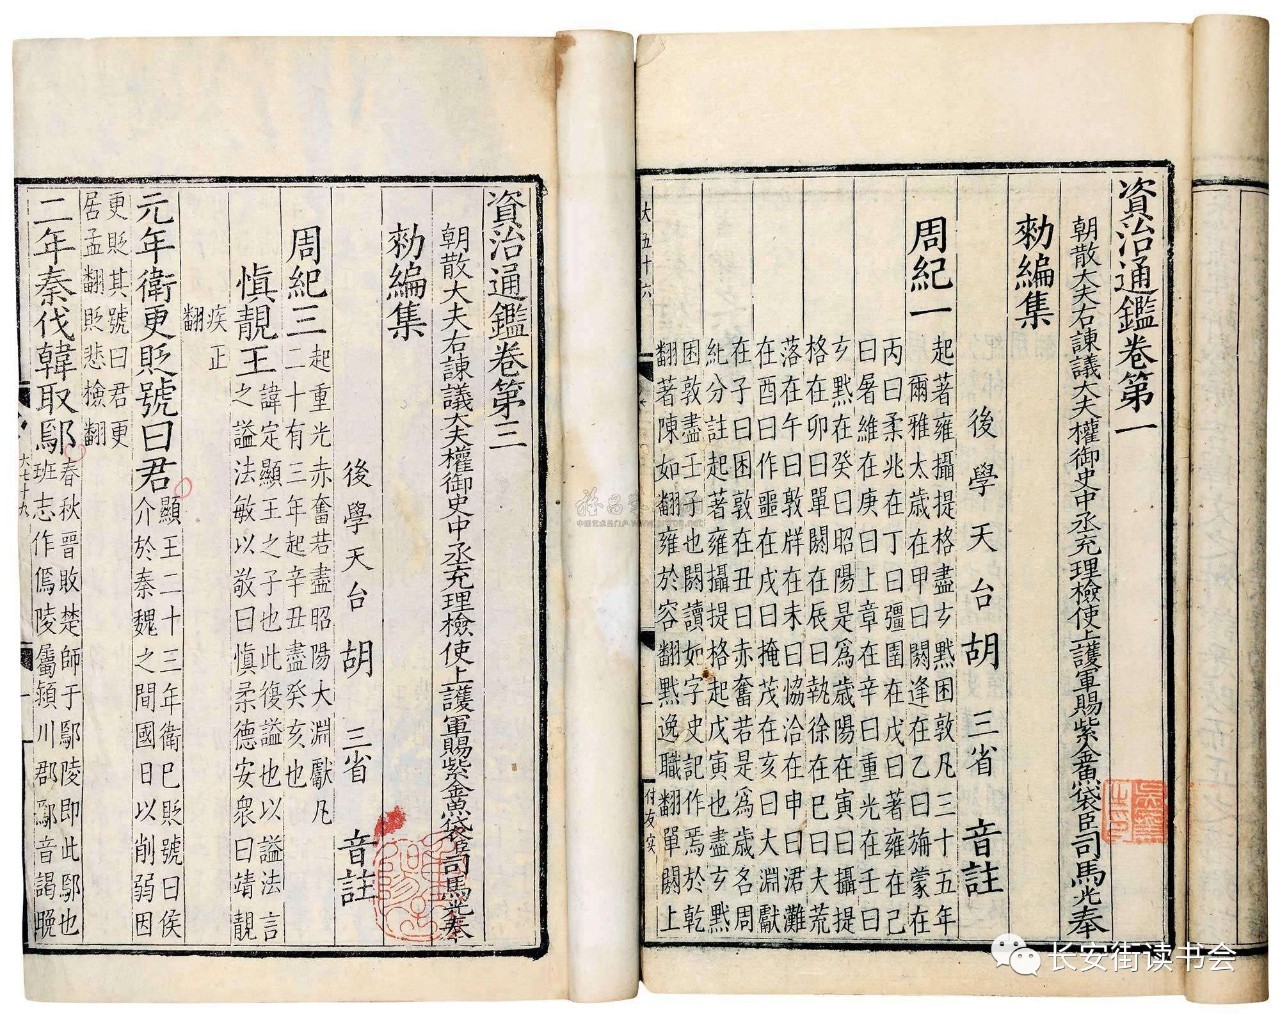 資治通鑑卷第一
朝散大夫右諫議大夫權御史中丞充理檢使上護軍賜紫金魚袋臣司馬光奉
勑編集
後學天台胡三省音註
周紀一
起著雍攝提格盡玄黓困敦凡三十五年
爾雅太歲在甲曰閼逢在乙曰旃蒙在
丙曰柔兆在丁曰彊圉在戊曰著雍在己
曰屠維在庚曰上章在辛曰重光在壬曰
玄黓在癸曰昭陽是爲歲陽在寅曰攝提
格在卯曰單閼在辰曰執徐在巳曰大荒
落在午曰敦牂在未曰協洽在申曰涒灘
在酉曰作噩在戌曰掩茂在亥曰大淵獻
在子曰困敦在丑曰赤奮若是爲歲名周
紀分註起著雍攝提格起戊寅也盡玄黓
困敦盡壬子也閼讀如字史記作焉於乾
翻著陳如翻雍於容翻黓逸職翻單閼上
大五十六
資治通鑑卷第三
朝散大夫右諫議大夫權御史中丞充理檢使上護軍賜紫金魚袋臣司馬光奉
勑編集
後學天台胡三省音註
周紀三
起重光赤奮若盡昭陽大淵獻凡
二十有三年起辛丑盡癸亥也
慎靚王
諱定顯王之子也此復謚也以謚法言
之謚法敏以敬曰慎柔德安衆曰靖靚
疾正
翻
元年衛更貶號曰君
顯王二十三年衛已貶號曰侯
介於秦魏之間國日以削弱因
更貶其號曰君更
居孟翻貶悲檢翻
二年秦伐韓取鄢
春秋晉敗楚師于鄢陵即此鄢也
班志作傿陵屬潁川郡鄢音謁晚
长安街读书会